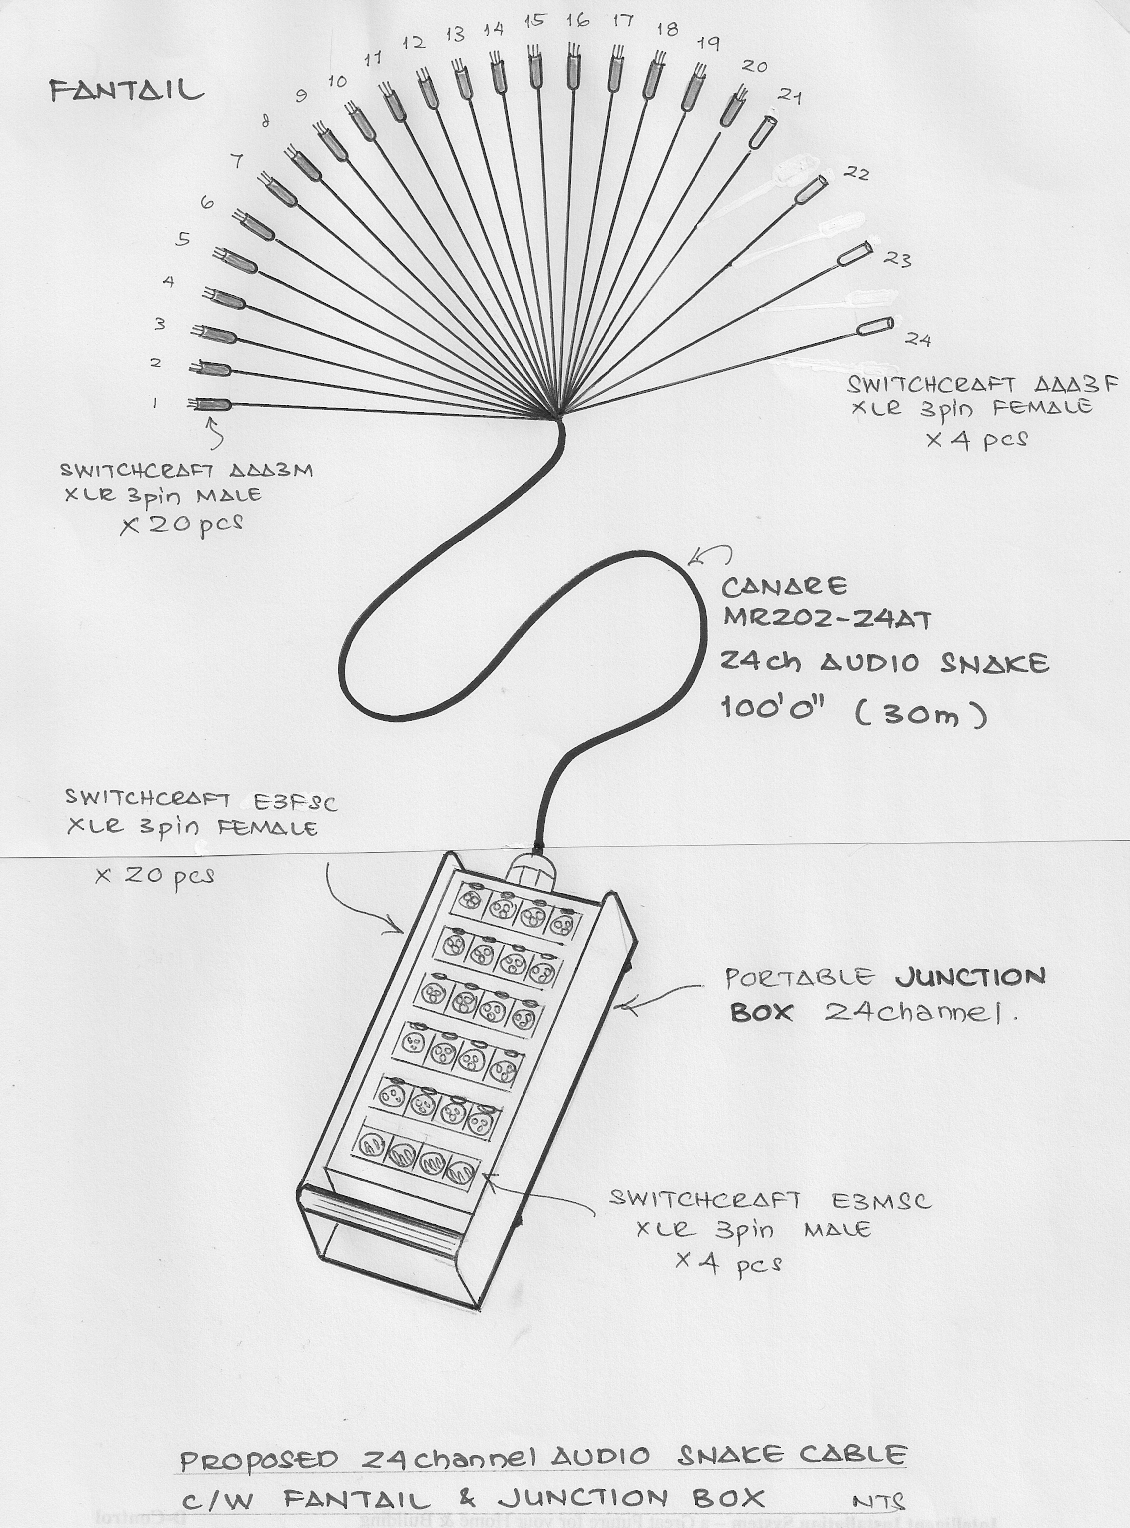 FANTAIL
1
2
3
4
5
6
7
8
9
10
11
12
13
14
15
16
17
18
19
20
21
22
23
24
SWITCHCRAFT AAA3F
XLR 3pin FEMALE
X 4 pcs
SWITCHCRAFT AAA3M
XLR 3pin MALE
X 20 pcs
CANARE
MR202-24AT
24ch AUDIO SNAKE
100'0" (30m)
SWITCHCRAFT E3FSC
XLR 3pin FEMALE
X 20 pcs
PORTABLE JUNCTION
BOX 24channel.
SWITCHCRAFT E3MSC
XLR 3pin MALE
X 4 pcs
PROPOSED 24channel AUDIO SNAKE CABLE
C/W FANTAIL & JUNCTION BOX NTS